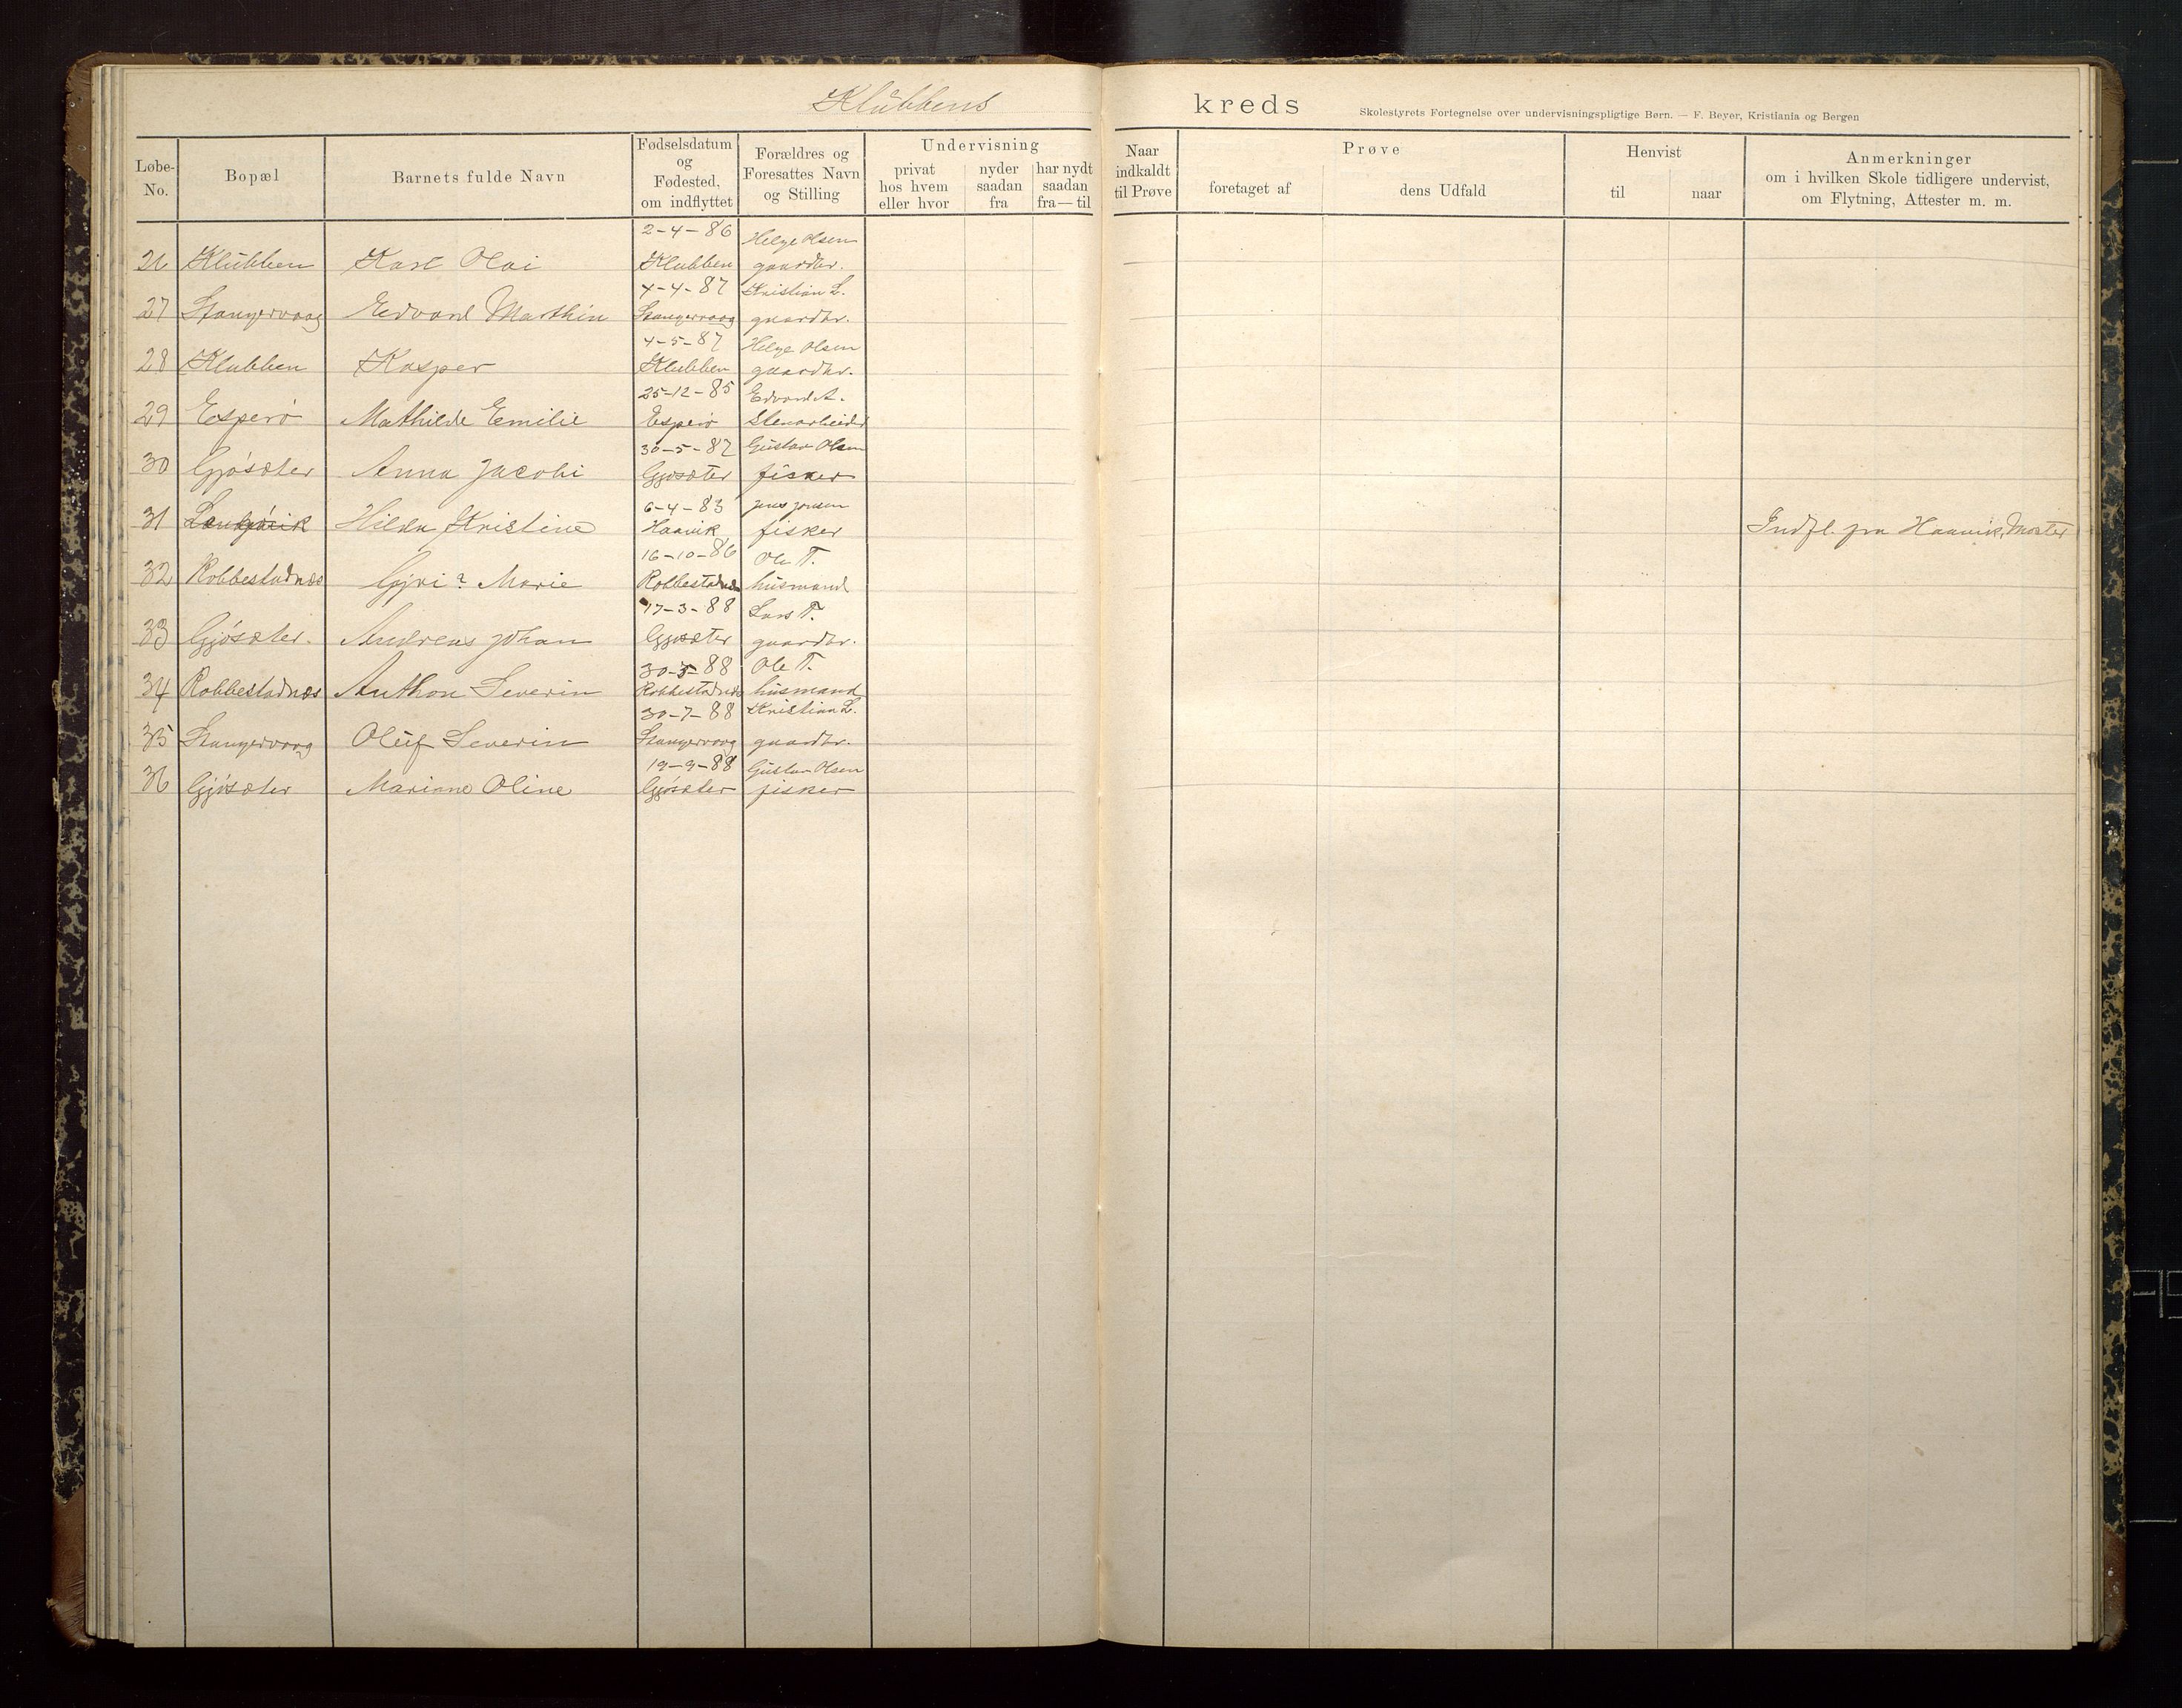 Klubbens kreds
Skolestyrets Fortegnelse over undervisningspligtige Børn. — F. Beyer, Kristiania og Bergen
Løbe-No.
Bopæl
Barnets fulde Navn
Fødselsdatum og Fødested, om indflyttet
Forældres og Foresattes Navn og Stilling
Undervisning
privat hos hvem eller hvor
nyder saadan fra
har nydt saadan fra — til
Naar indkaldt til Prøve
Prøve
foretaget af
dens Udfald
Henvist
til
naar
Anmerkninger
om i hvilken Skole tidligere undervist,
om Flytning, Attester m. m.
2-4-86 Helge Olsen
26 Klubben Karl Olai Klubben gaardbr.
4-4-87 Kristian L.
27 Stangervaag Edvard Marthin Stangervaag gaardbr.
4-5-87 Helge Olsen
28 Klubben Kasper Klubben gaardbr.
25-12-85 Edvard A.
29 Esperö Mathilde Emilie Esperö Stenarbeider
30-5-87 Gustav Olsen
30 Gjösæter Anna Jacobi Gjösæter fisker
6-4-83 Jens Jensen
31 Hilda Kristine Haavik fisker Indfl. fra Haavik, Moster
16-10-86 Ole T.
32 Robbestadnæs Gjri? Marie Robbestadnæs husmand
17-3-88 Lars T.
33 Gjösæter. Andreas Johan Gjösæter gaardbr.
30-5-88 Ole T.
34 Robbestadnæs Anthon Severin Robbestadnæs husmand
30-7-88 Kristian L.
35 Stangervaag Oluf Severin Stangervaag gaardbr.
19-9-88 Gustav Olsen
36 Gjösæter Mariane Oline Gjösæter fisker